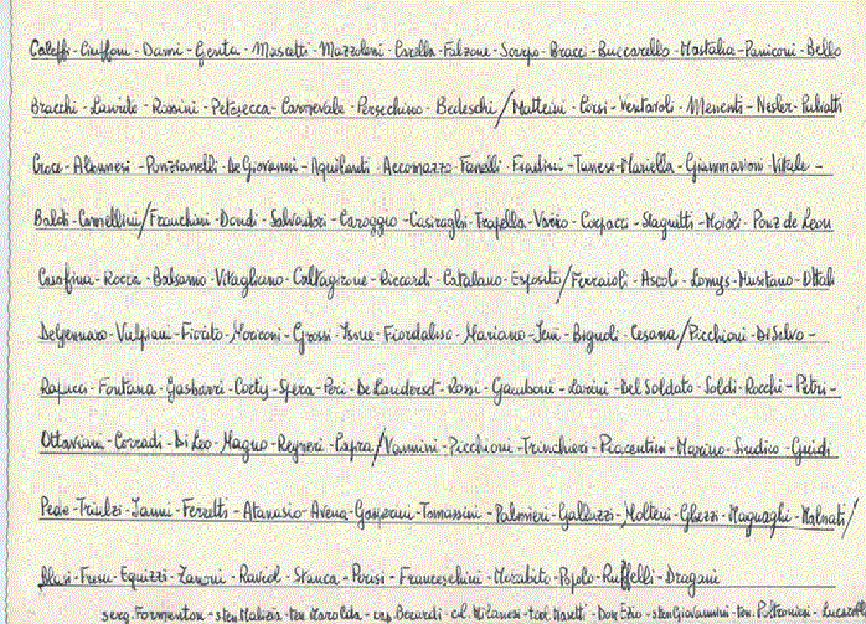 Caleffi - Ciuffoni - Dami - Genta - Mascetti - Mazzoleni - Corella - Falzone - Scarpo - Bracci - Buccarello - Mastalia - Paniconi - Bello
Bracchi - Laurito - Rossini - Petesecca - Carnevale - Persechino - Bedeschi / Matteini - Corsi - Ventaroli - Menenti - Nesler -
Croce - Albanesi - Ponzianelli - De Giovanni - Aquilanti - Accomazzo - Fanelli - Fradini - Tunesi - Mariella - Giammarioni - Vitale -
Baldi - Cannellini / Franchini - Dondi - Salvadori - Caroggio - Casiraghi - Trapella - Vario - Capacci - Slaguitti - Moioli - Ponz de Leon
Casafina - Rocca - Balsamo - Vitagliano - Caltagirone - Riccardi - Catalano - Esposito / Ferraioli - Ascoli - Lomys - Musitano - Ottali
De Gennaro - Vulpiani - Fiorito - Moriconi - Grossi - Fiordaliso - Mariano - Bignoli - Cesana / Picchioni - Di Salvo -
Rapucci - Fontana - Gasbarri - Coety - Spera - Peri - De Lauderset - Rossi - Gamboni - Lavini - Del Soldato - Soldi - Rocchi - Petri -
Ottaviani - Corradi - Di Leo - Magno - Reyneri - Capra / Vannini - Picchioni - Trinchieri - Piacentini - Marino - Sindico - Guidi
Triulzi - Ianni - Ferretti - Atanasio - Avena - Gasparri - Tomassini - Palmieri - Galluzzi - Molteni - Ghezzi - Magnaghi - Malnati /
Blasi - Fresu - Equizzi - Zanoni - Raviol - Stanca - Parisi - Franceschini - Morabito - Popolo - Ruffelli - Dragani
serg. Formenton - sten Malizia - ten Marolda - cap. Berardi - col. Milanesi - Don Ezio - sten Giovannini - ten.